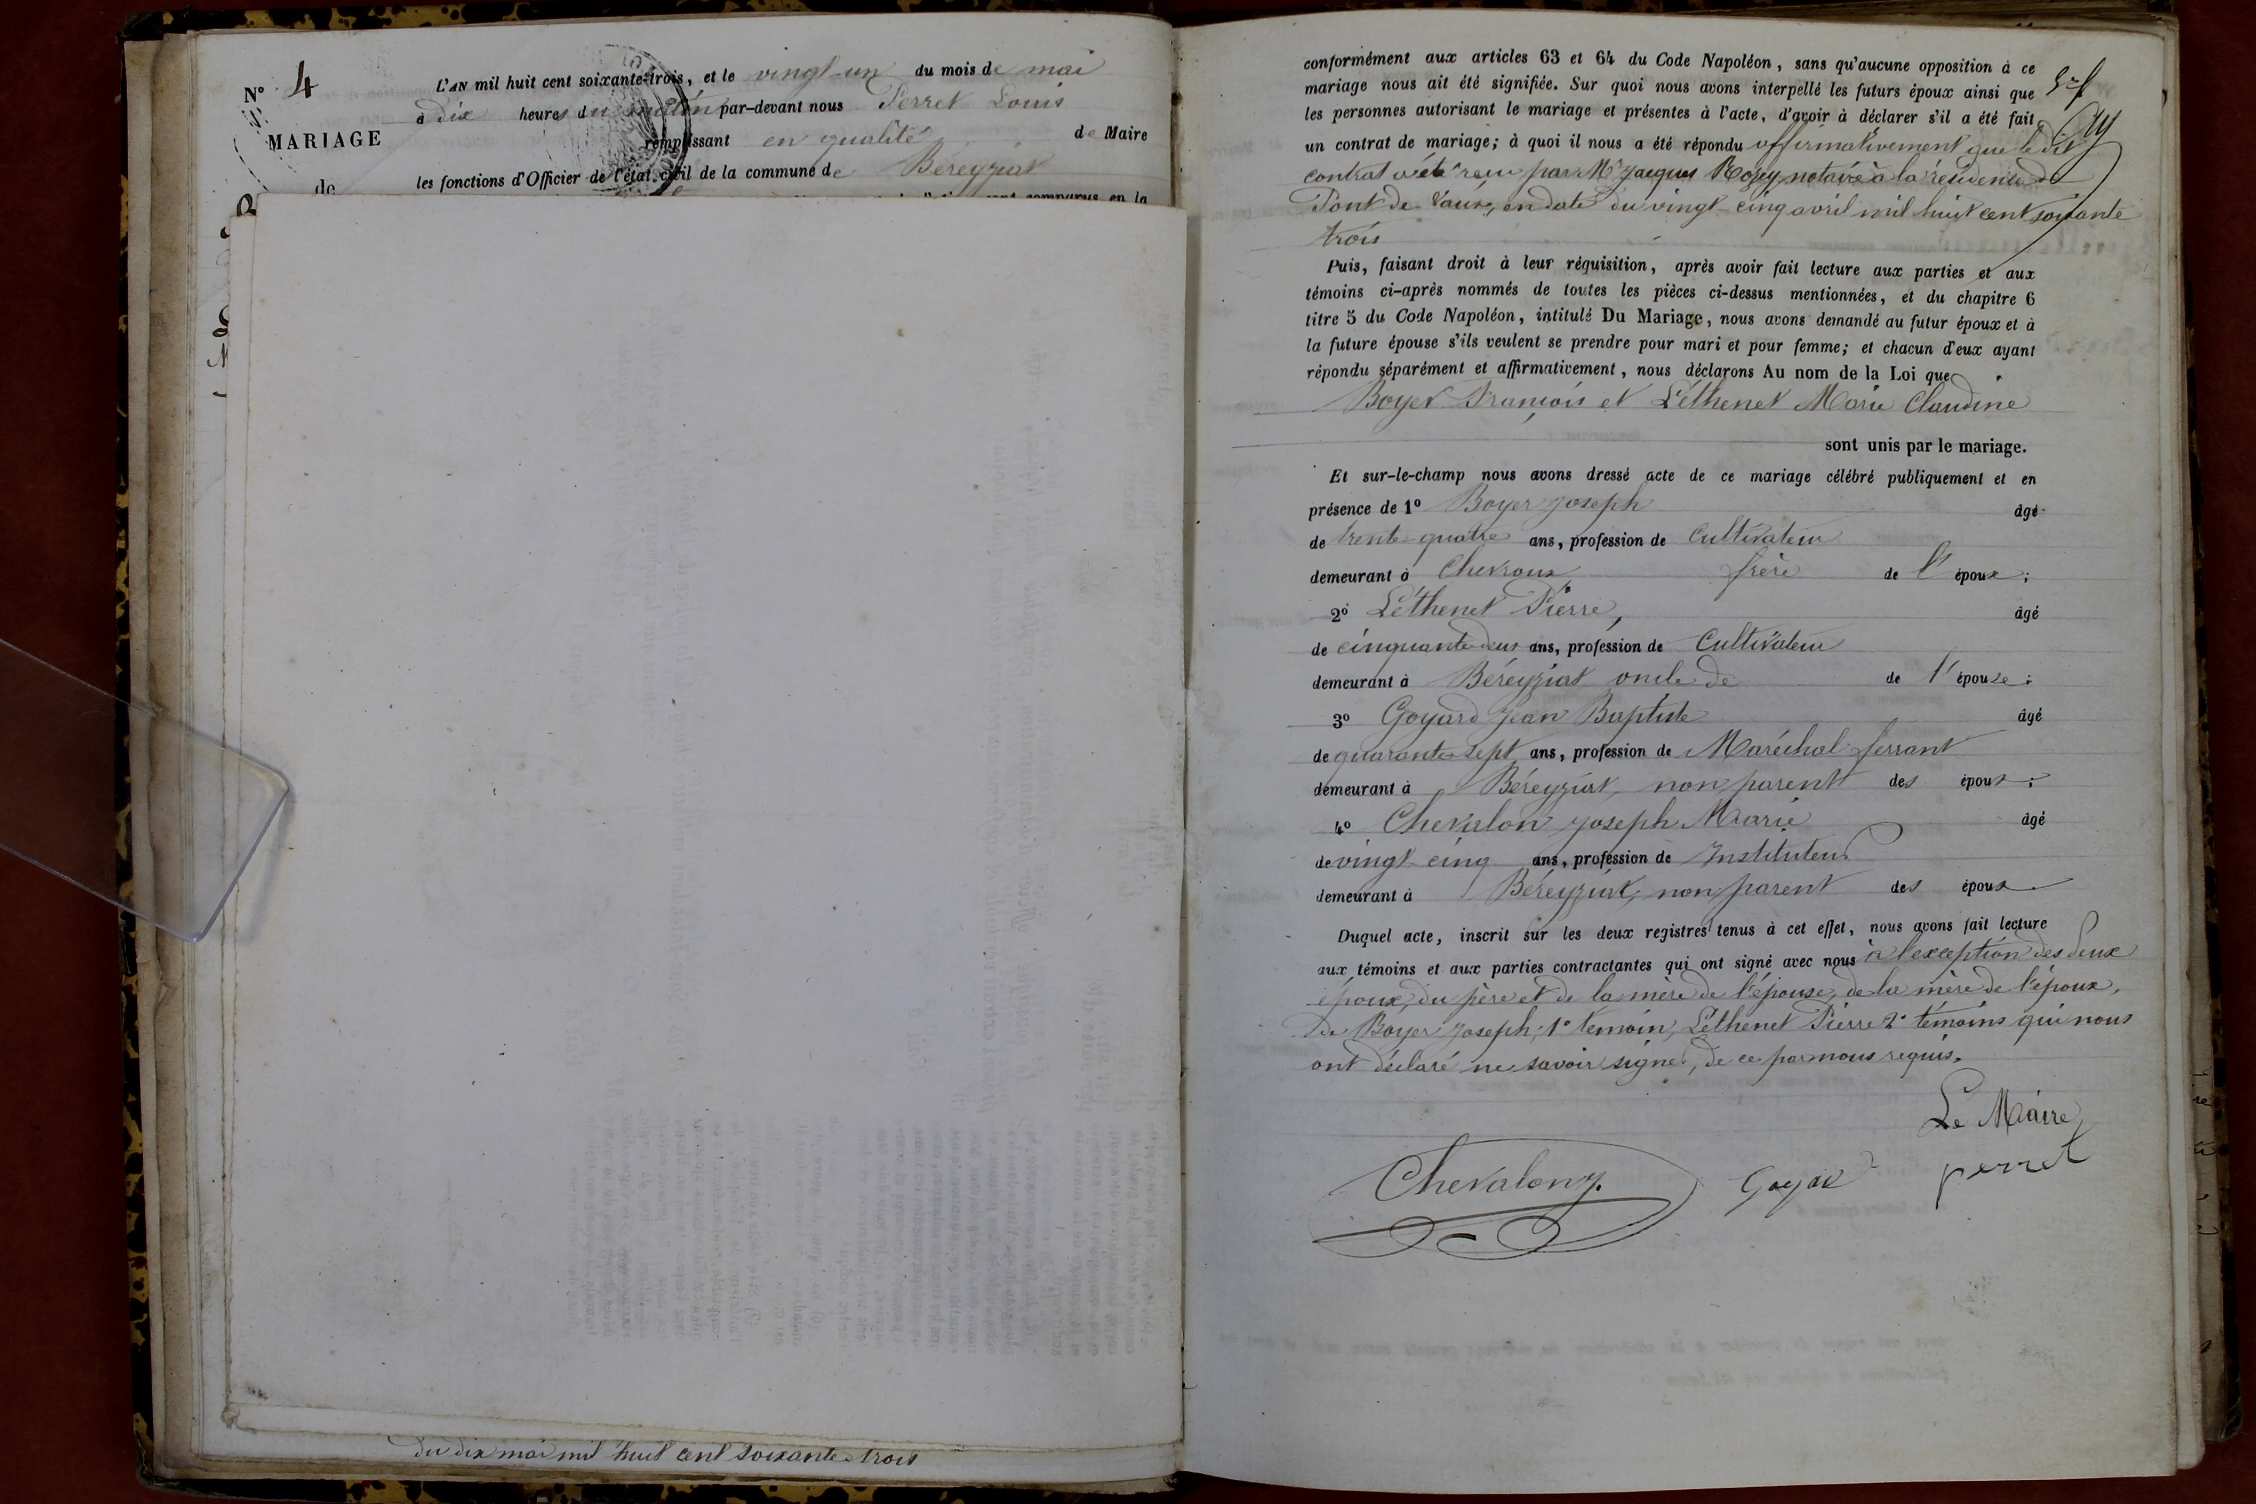 N° 4
MARIAGE
de
L'AN mil huit cent soixante-trois, et le vingt-un du mois de mai
à dix heures du matin par-devant nous Perret Louis
remplissant en qualité de Maire
les fonctions d'Officier de l'état civil de la commune de Béreyziat
comparus en la
du dix mai mil huit cent soixante trois
conformément aux articles 63 et 64 du Code Napoléon, sans qu'aucune opposition à ce
mariage nous ait été signifiée. Sur quoi nous avons interpellé les futurs époux ainsi que
les personnes autorisant le mariage et présentes à l'acte, d'avoir à déclarer s'il a été fait
un contrat de mariage; à quoi il nous a été répondu affirmativement que le dit
contrat a été reçu par Me Jacques Rozey notaire à la résidence de
Pont de Vaux, en date du vingt-cinq avril mil huit cent soixante
trois
Puis, faisant droit à leur réquisition, après avoir fait lecture aux parties et aux
témoins ci-après nommés de toutes les pièces ci-dessus mentionnées, et du chapitre 6
titre 5 du Code Napoléon, intitulé Du Mariage, nous avons demandé au futur époux et à
la future épouse s'ils veulent se prendre pour mari et pour femme; et chacun d'eux ayant
répondu séparément et affirmativement, nous déclarons Au nom de la Loi que
Boyer François et Léthenet Marie Claudine
sont unis par le mariage.
Et sur-le-champ nous avons dressé acte de ce mariage célébré publiquement et en
présence de 1° Boyer Joseph âgé
de trente-quatre ans, profession de Cultivateur
demeurant à Chevroux frère de l'époux;
2° Léthenet Pierre, âgé
de cinquante-deux ans, profession de Cultivateur
demeurant à Béreyziat oncle de de l'épouse;
3° Goyard Jean Baptiste âgé
de quarante-sept ans, profession de Maréchal ferrant
demeurant à Béreyziat, non parent des époux;
4° Chevalon Joseph Marie âgé
de vingt-cinq ans, profession de Instituteur
demeurant à Béreyziat, non parent des époux
Duquel acte, inscrit sur les deux registres tenus à cet effet, nous avons fait lecture
aux témoins et aux parties contractantes qui ont signé avec nous à l'exception des deux
époux, du père et de la mère de l'épouse, de la mère de l'époux,
de Boyer Joseph, 1° témoin, Léthenet Pierre 2° témoins qui nous
ont déclaré ne savoir signer, de ce par nous requis.
Le Maire
Chevalon J. Goyard perret